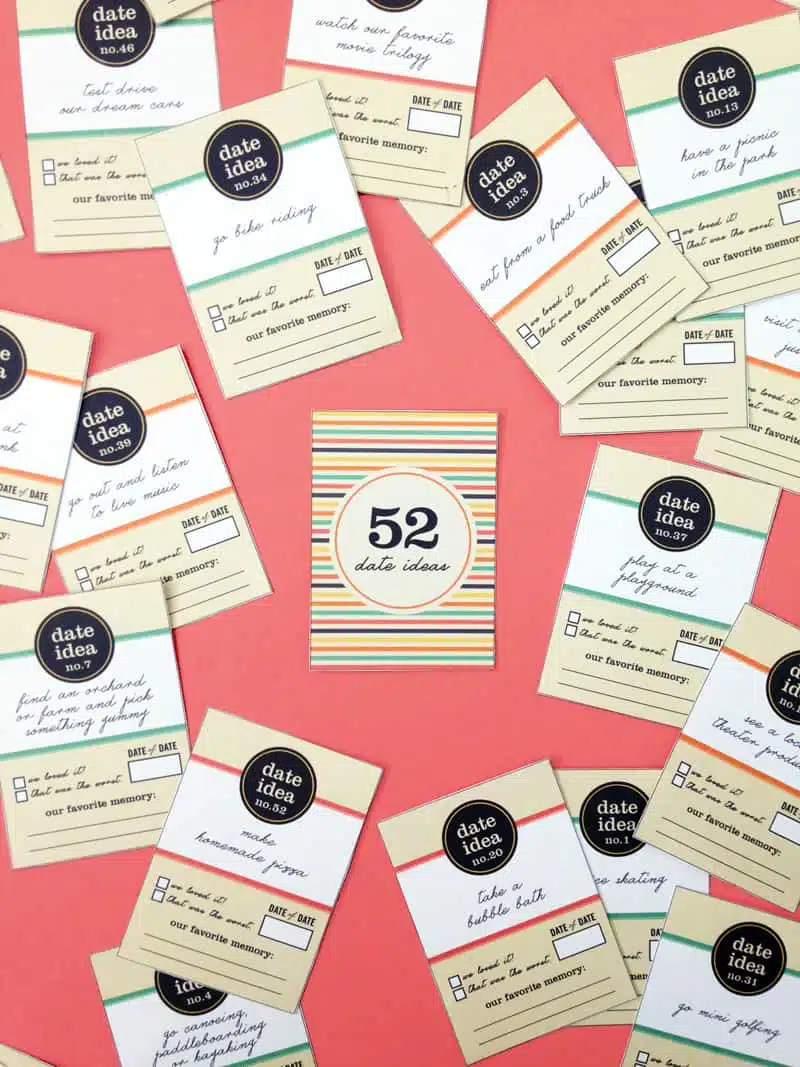 date
idea
no.46
test drive
our dream cars
we loved it!
that was the worst.
our favorite
watch our favorite
movie trilogy
loved it!
DATE of DATE
was the worst.
favorite memory:
date
idea
no.13
have a picnic
in the park
DATE
that was the worst.
our favorite memory
date
idea
no.34
go bike riding
DATE of DATE
we loved it!
that was the worst.
our favorite memory:
date
idea
no.3
eat from a food truck
DATE of DATE
we loved it!
that was the worst.
our favorite memory:
worst.
DATE of DATE
our favorite memory:
visit
we loved it!
was the worst.
our favorite
at
DATE of DATE
date
idea
no.39
go out and listen
to live music
DATE of DATE
we loved it!
that was the worst.
favorite memory:
52
date ideas
date
idea
no.37
play at a
playground
we loved it!
that was the worst.
DATE of DAT
our favorite memory:
date
idea
no.7
find an orchard
or farm and pick
something yummy
DATE of DATE
we loved it!
that was the worst.
our favorite memory:
see a
theater
we loved it!
that was the worst.
DATE
our favorite memory:
date
idea
no.52
make
homemade pizza
we loved it!
that was the worst.
DATE of DATE
our favorite memory:
date
idea
no.20
take a
bubble bath
DATE of DATE
we loved it!
that was the worst.
our favorite memory:
date
idea
no.1
skating
DATE
worst.
memory:
no.4
go canoeing,
paddleboarding
or kayaking
date
idea
no.31
go mini golfing
we loved it!
DATE of DATE